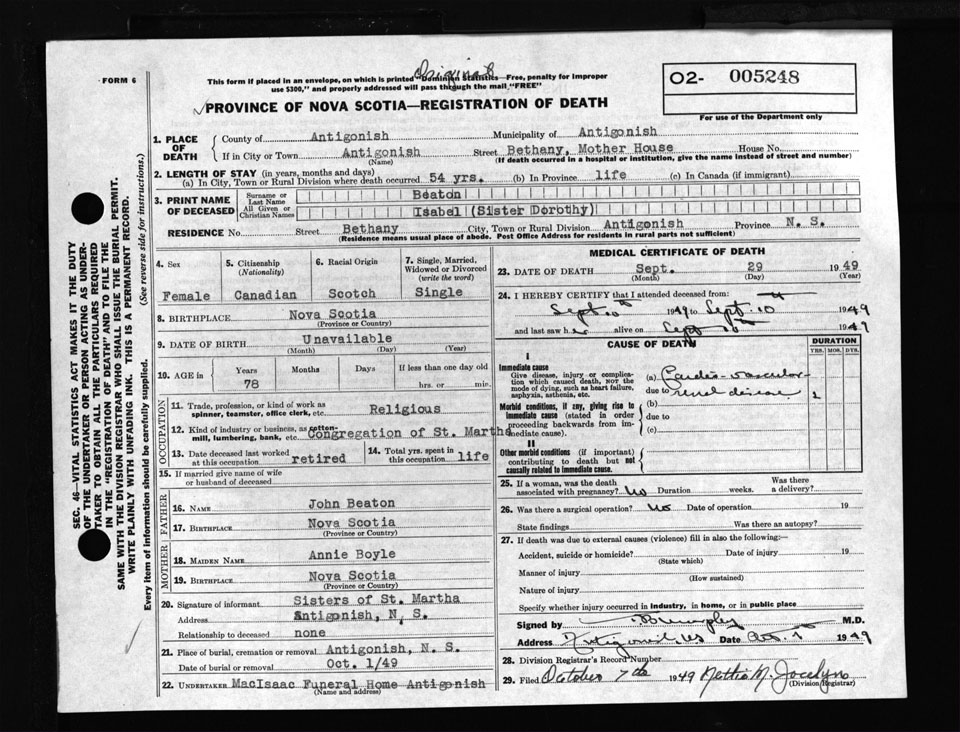 FORM 6
Original
This form if placed in an envelope, on which is printed "Dominion Statistics—Free, penalty for improper
use $300," and properly addressed will pass through the mail "FREE"
PROVINCE OF NOVA SCOTIA—REGISTRATION OF DEATH
O2- 005248
For use of the Department only
1. PLACE OF DEATH
County of Antigonish Municipality of Antigonish
If in City or Town Antigonish Street Bethany, Mother House House No.
(Name) (If death occurred in a hospital or institution, give the name instead of street and number)
2. LENGTH OF STAY (in years, months and days)
(a) In City, Town or Rural Division where death occurred 54 yrs. (b) In Province life (c) In Canada (if immigrant)
3. PRINT NAME OF DECEASED
Surname or Last Name Beaton
All Given or Christian Names Isabel (Sister Dorothy)
RESIDENCE No. Street Bethany City, Town or Rural Division Antigonish Province N. S.
(Residence means usual place of abode. Post Office Address for residents in rural parts not sufficient)
4. Sex
Female
5. Citizenship (Nationality)
Canadian
6. Racial Origin
Scotch
7. Single, Married, Widowed or Divorced (write the word)
Single
8. BIRTHPLACE Nova Scotia
(Province or Country)
9. DATE OF BIRTH Unavailable
(Month) (Day) (Year)
10. AGE in
Years Months Days If less than one day old
78 hrs. or min.
OCCUPATION
11. Trade, profession, or kind of work as
spinner, teamster, office clerk, etc. Religious
12. Kind of industry or business, as cotton-
mill, lumbering, bank, etc. Congregation of St. Martha
13. Date deceased last worked
at this occupation retired
14. Total yrs. spent in
this occupation life
15. If married give name of wife
or husband of deceased
FATHER
16. NAME John Beaton
17. BIRTHPLACE Nova Scotia
(Province or Country)
MOTHER
18. MAIDEN NAME Annie Boyle
19. BIRTHPLACE Nova Scotia
(Province or Country)
20. Signature of informant Sisters of St. Martha
Address Antigonish, N. S.
Relationship to deceased none
21. Place of burial, cremation or removal Antigonish, N. S.
Date of burial or removal Oct. 1/49
22. UNDERTAKER MacIsaac Funeral Home Antigonish
(Name and address)
MEDICAL CERTIFICATE OF DEATH
23. DATE OF DEATH Sept. 29 1949
(Month) (Day) (Year)
24. I HEREBY CERTIFY that I attended deceased from:
Sept. 10th 1949 to Sept. 10th 1949
and last saw her alive on Sept 10th 1949
CAUSE OF DEATH
DURATION
YRS. MOS. DYS.
I
Immediate cause
Give disease, injury or complica-
tion which caused death, NOT the
mode of dying, such as heart failure,
asphyxia, asthenia, etc.
(a) Cardio-vascular-
due to renal disease 2
Morbid conditions, if any, giving rise to
immediate cause (stated in order
proceeding backwards from im-
mediate cause).
(b)
due to
(c)
II
Other morbid conditions (if important)
contributing to death but not
causally related to immediate cause.
25. If a woman, was the death
associated with pregnancy? No Duration weeks. Was there a delivery?
26. Was there a surgical operation? No Date of operation 19
State findings Was there an autopsy?
27. If death was due to external causes (violence) fill in also the following:—
Accident, suicide or homicide? Date of injury 19
(State which)
Manner of injury
(How sustained)
Nature of injury
Specify whether injury occurred in industry, in home, or in public place
Signed by Murphy M.D.
Address Antigonish, NS Date Oct. 1st 1949
28. Division Registrar's Record Number
29. Filed October 7th 1949 Nettie M. Jocelyn
(Division Registrar)
SEC. 46—VITAL STATISTICS ACT MAKES IT THE DUTY
OF THE UNDERTAKER OR PERSON ACTING AS UNDER-
TAKER TO OBTAIN ALL THE PARTICULARS REQUIRED
IN THE "REGISTRATION OF DEATH" AND TO FILE THE
SAME WITH THE DIVISION REGISTRAR WHO SHALL ISSUE THE BURIAL PERMIT.
WRITE PLAINLY WITH UNFADING INK. THIS IS A PERMANENT RECORD.
Every item of information should be carefully supplied. (See reverse side for instructions.)